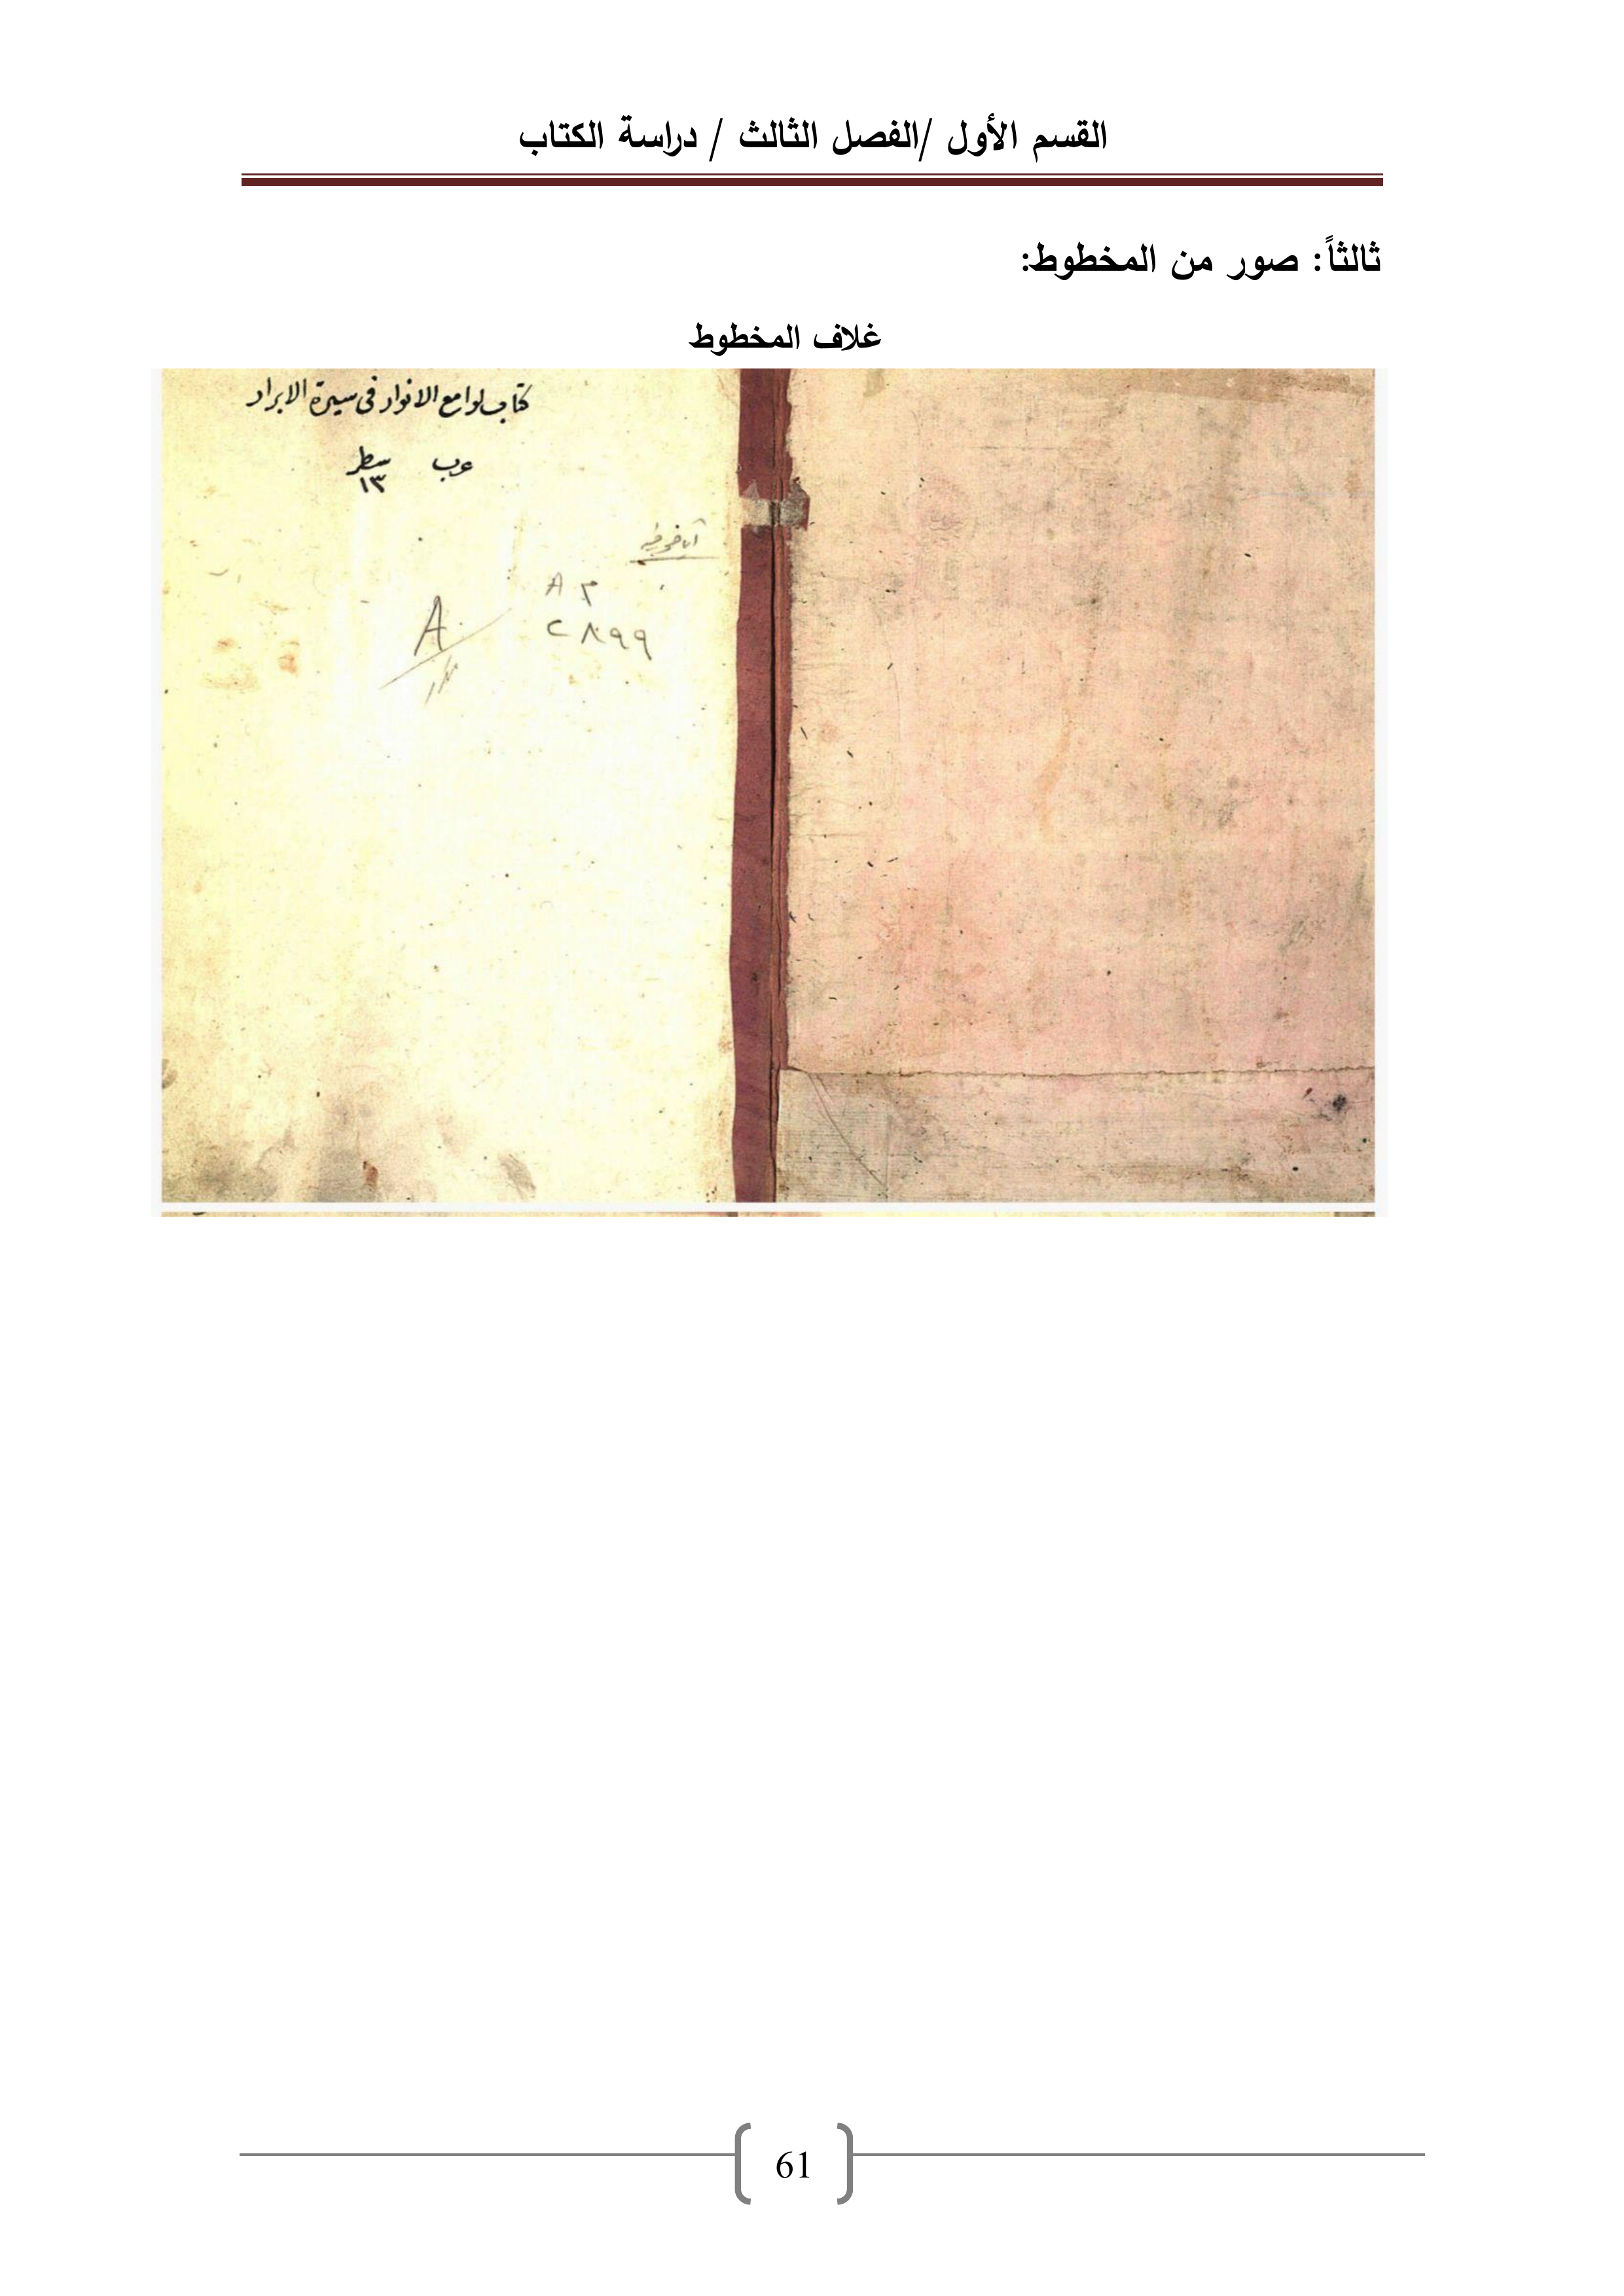 القسم الأول /الفصل الثالث / دراسة الكتاب
ثالثاً: صور من المخطوط:
غلاف المخطوط
كتاب لوامع الانوار فى سيرة الابرار
سطر
١٣
61